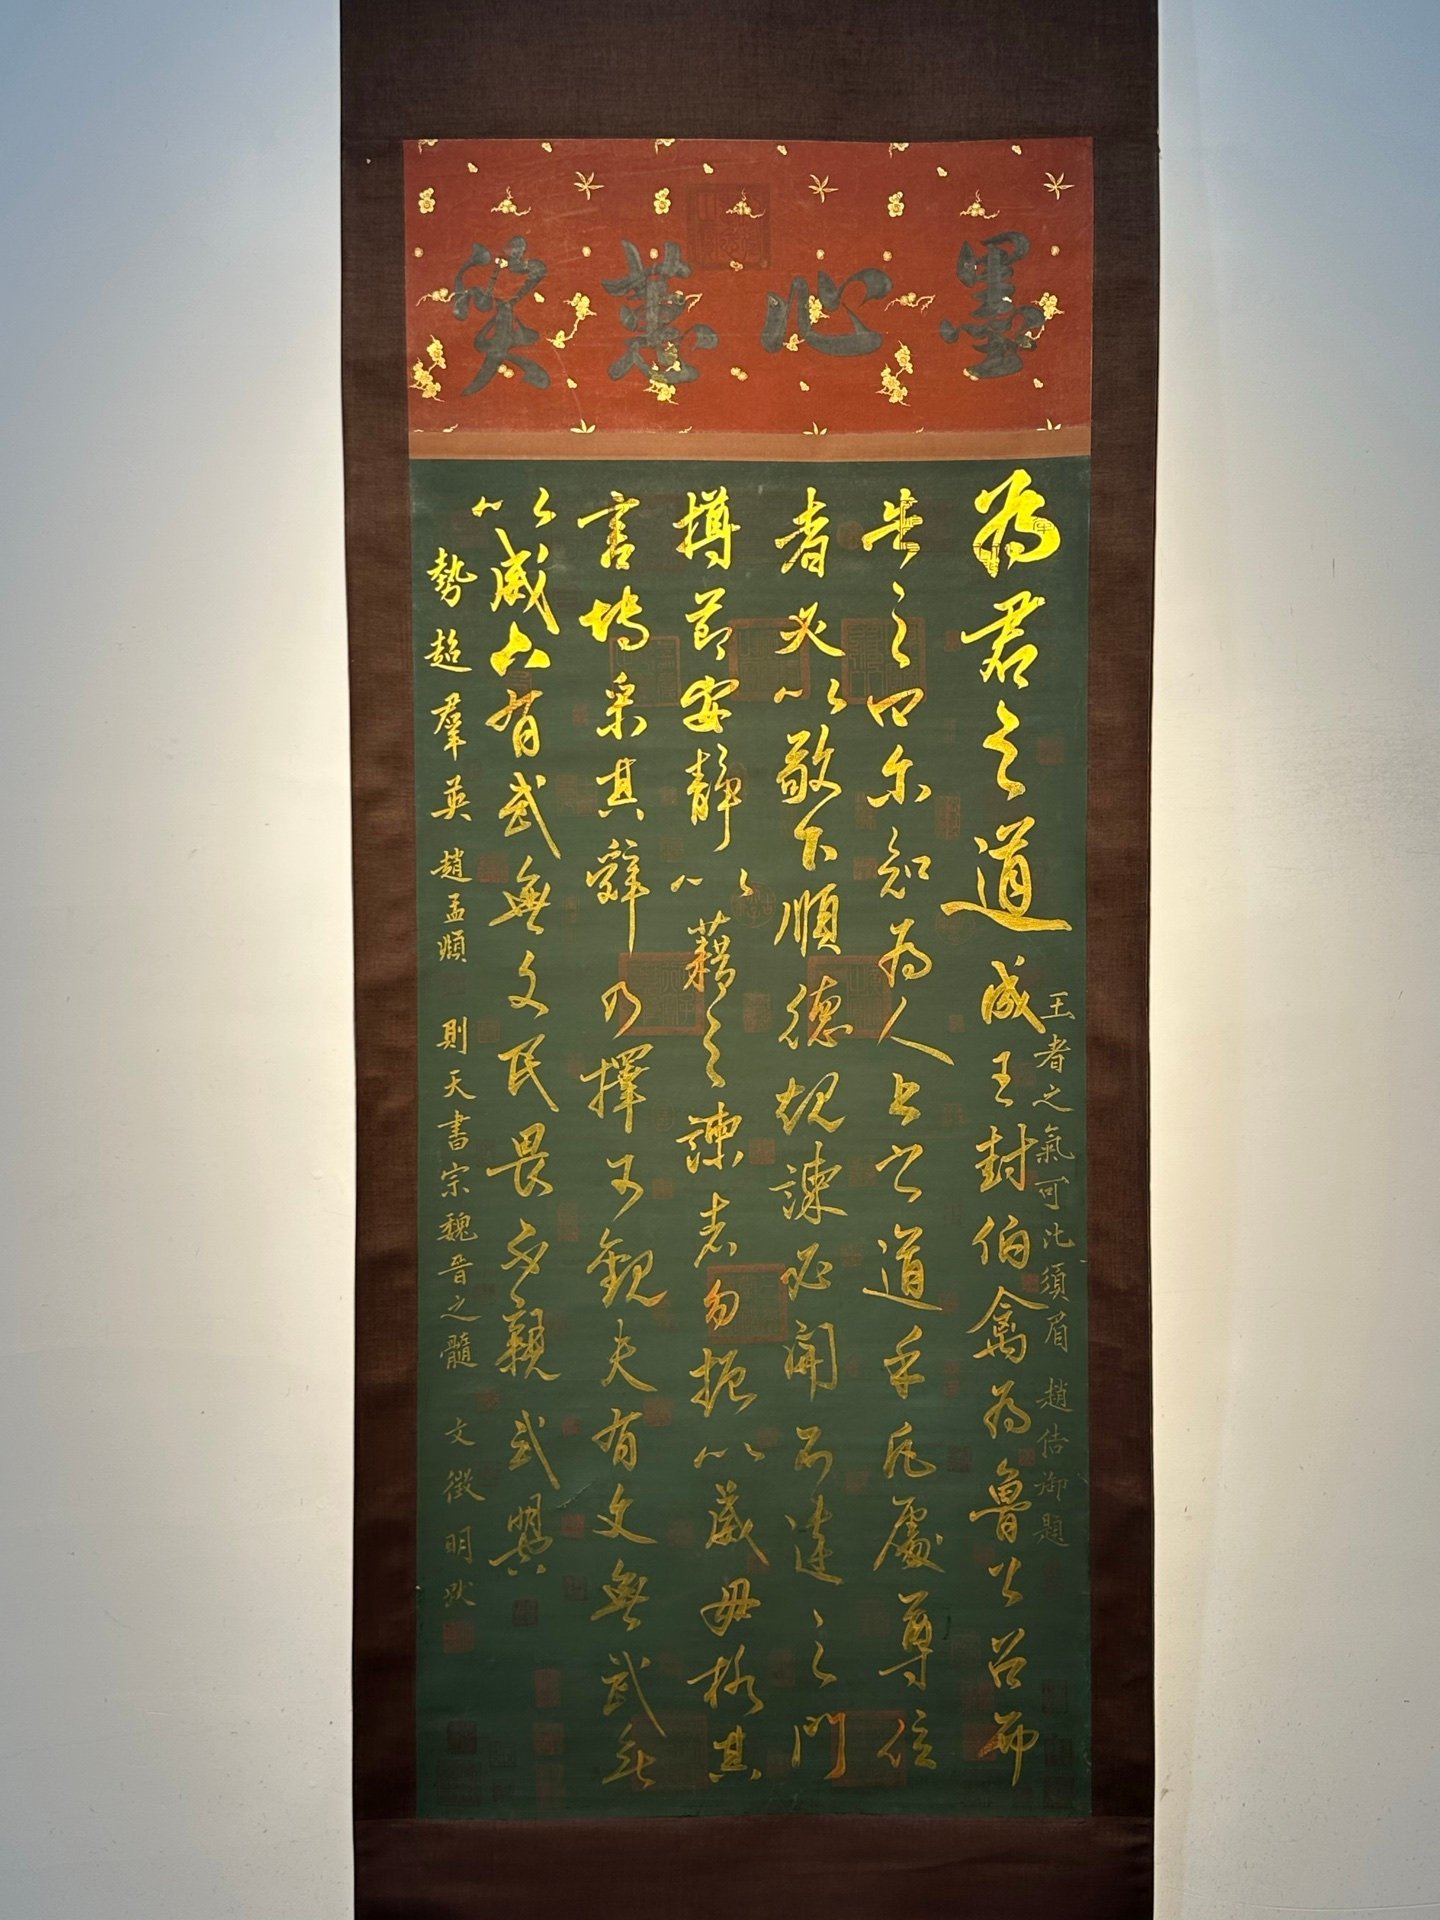 墨心蕙笑
王者之氣可比須眉 趙佶御題
為君之道成王封伯禽為魯公召而
告之曰尔知為人上之道乎凡處尊位
者必以敬下順德規諫必開不達之門
撙節安静以藉之諫者勿振以威毋格其
言博采其辭乃擇可觀夫有文無武無
以威下有武無文民畏不親
勢超羣英 趙孟頫 則天書宗魏晋之髓 文徵明跋